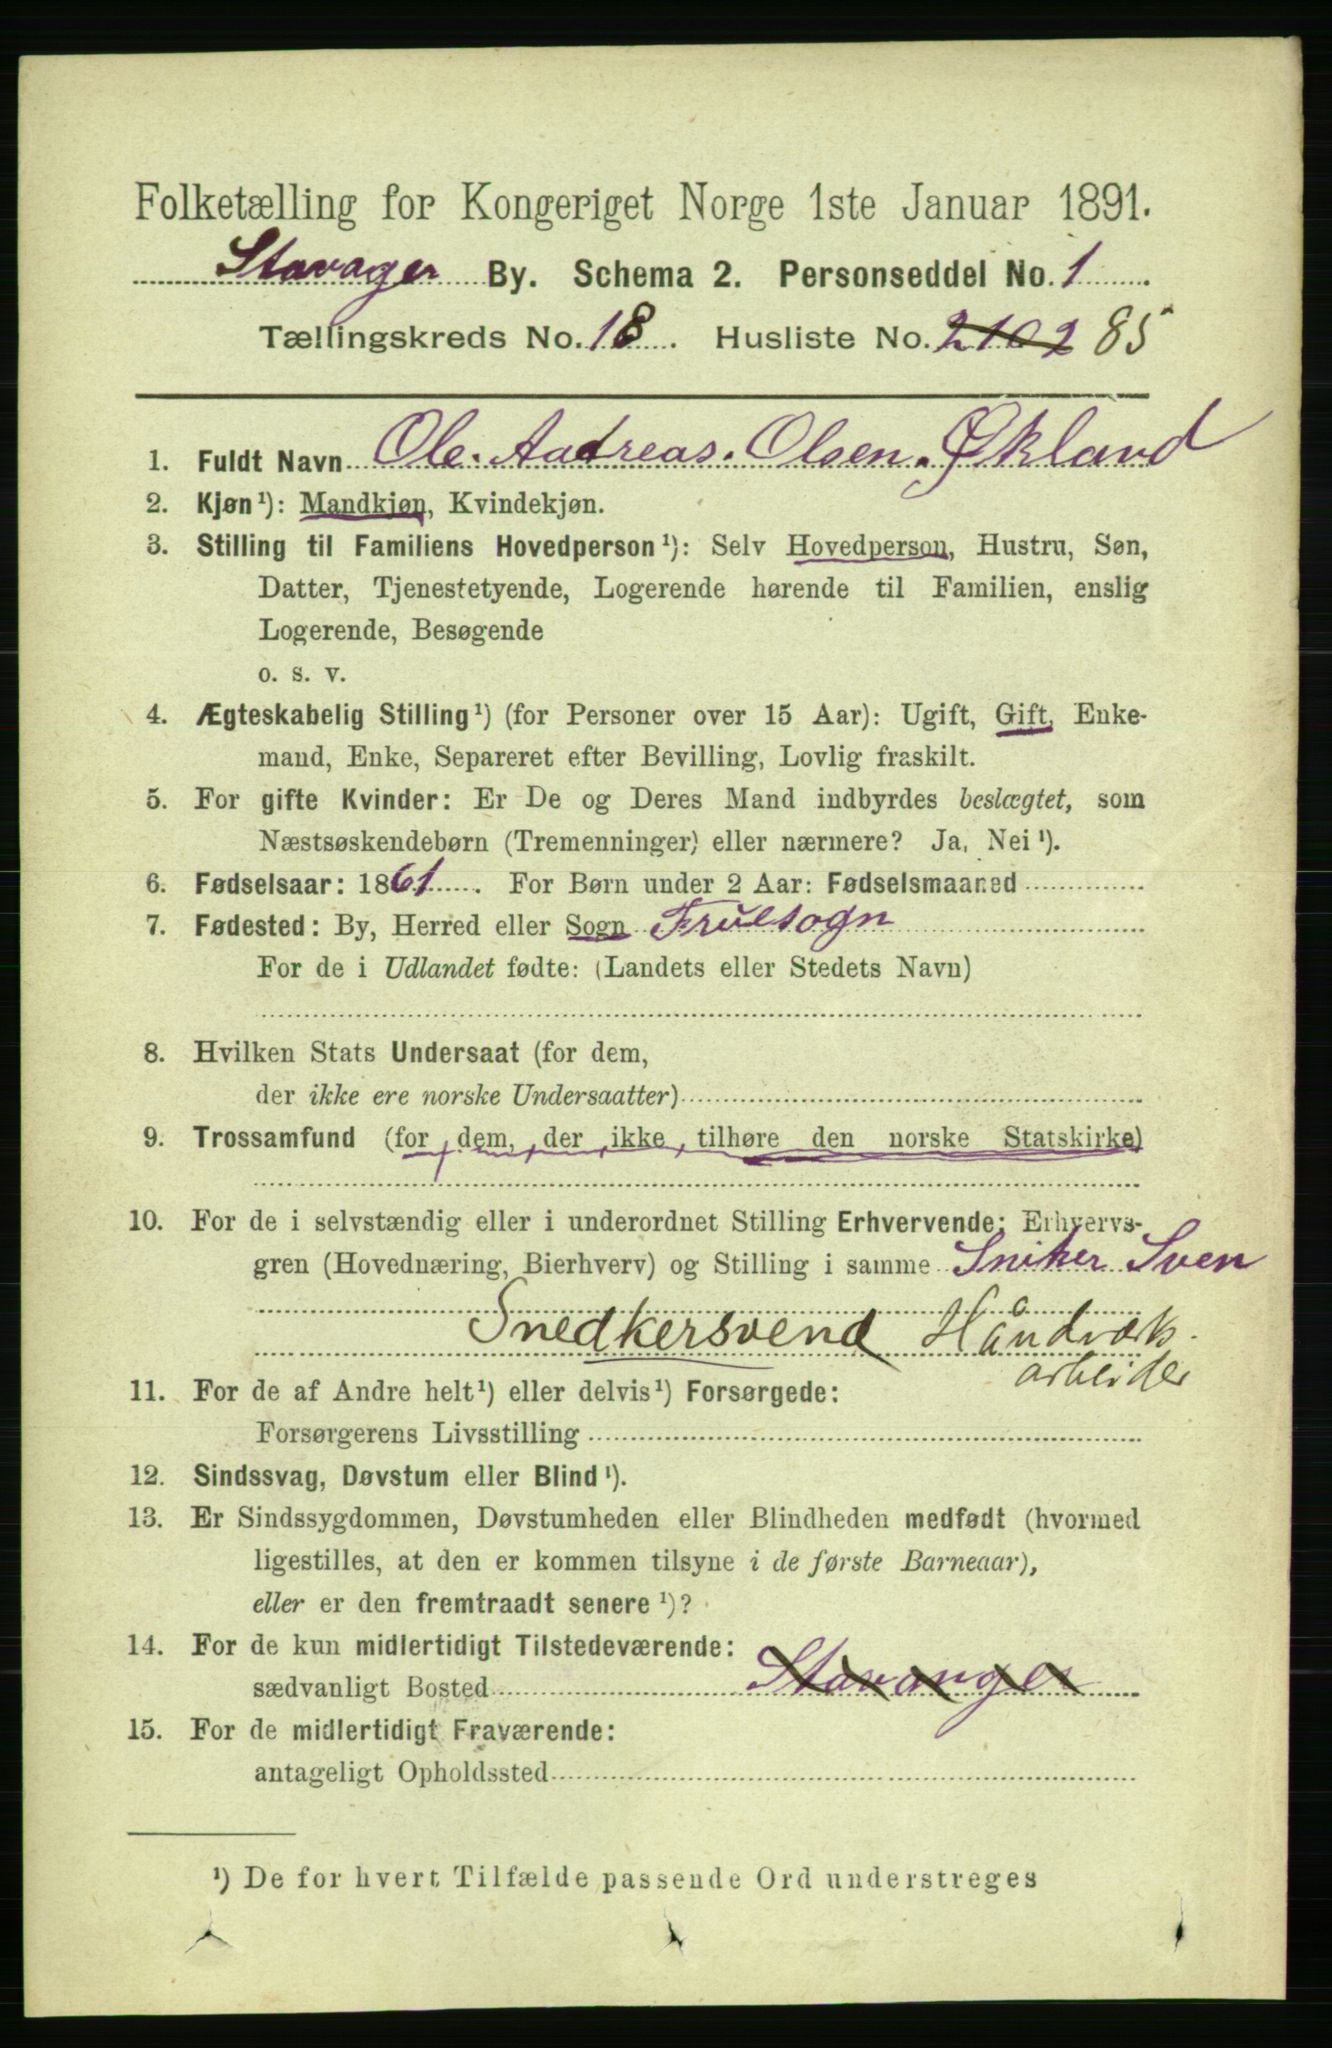 Folketælling for Kongeriget Norge 1ste Januar 1891.
Stavager By. Schema 2. Personseddel No. 1
Tællingskreds No. 18. Husliste No. 2102 85
1. Fuldt Navn Ole. Aadreas. Olsen. Økland
2. Kjøn¹): Mandkjøn, Kvindekjøn.
3. Stilling til Familiens Hovedperson¹): Selv Hovedperson, Hustru, Søn,
Datter, Tjenestetyende, Logerende hørende til Familien, enslig
Logerende, Besøgende
o. s. v.
4. Ægteskabelig Stilling¹) (for Personer over 15 Aar): Ugift, Gift, Enke-
mand, Enke, Separeret efter Bevilling, Lovlig fraskilt.
5. For gifte Kvinder: Er De og Deres Mand indbyrdes beslægtet, som
Næstsøskendebørn (Tremenninger) eller nærmere? Ja, Nei¹).
6. Fødselsaar: 1861. For Børn under 2 Aar: Fødselsmaaned
7. Fødested: By, Herred eller Sogn Fruesogn
For de i Udlandet fødte: (Landets eller Stedets Navn)
8. Hvilken Stats Undersaat (for dem,
der ikke ere norske Undersaatter)
9. Trossamfund (for dem, der ikke tilhøre den norske Statskirke)
10. For de i selvstændig eller i underordnet Stilling Erhvervende: Erhvervs-
gren (Hovednæring, Bierhverv) og Stilling i samme Sniker Sven
Snedkersvend Håndværk.
arbeider
11. For de af Andre helt¹) eller delvis¹) Forsørgede:
Forsørgerens Livsstilling
12. Sindssvag, Døvstum eller Blind¹).
13. Er Sindssygdommen, Døvstumheden eller Blindheden medfødt (hvormed
ligestilles, at den er kommen tilsyne i de første Barneaar),
eller er den fremtraadt senere¹)?
14. For de kun midlertidigt Tilstedeværende:
sædvanligt Bosted Stavanger
15. For de midlertidigt Fraværende:
antageligt Opholdssted
¹) De for hvert Tilfælde passende Ord understreges